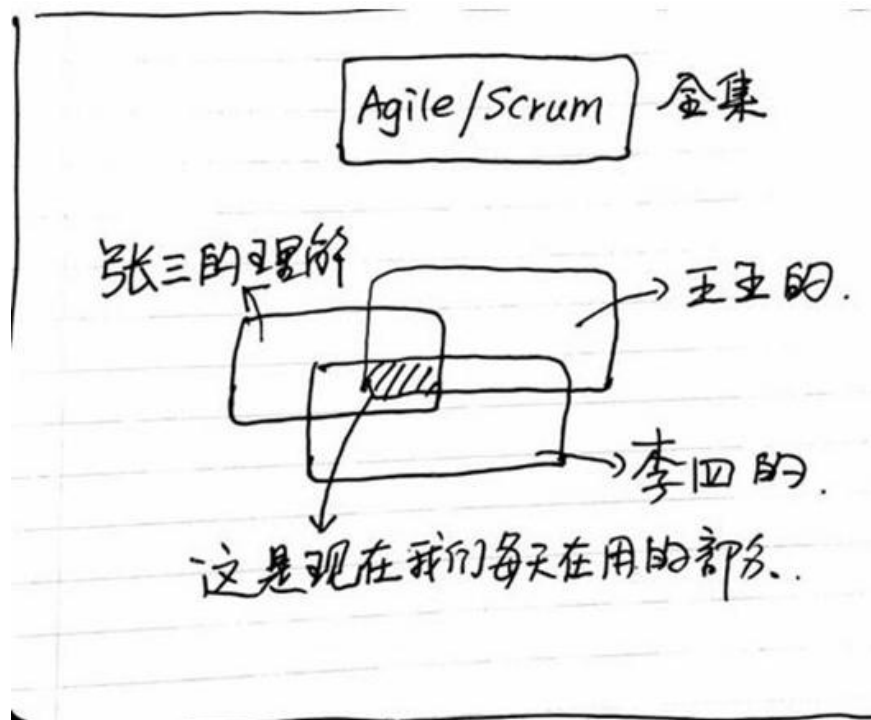 Agile/Scrum 全集
张三的理解
王五的.
李四的.
这是现在我们每天在用的部分..